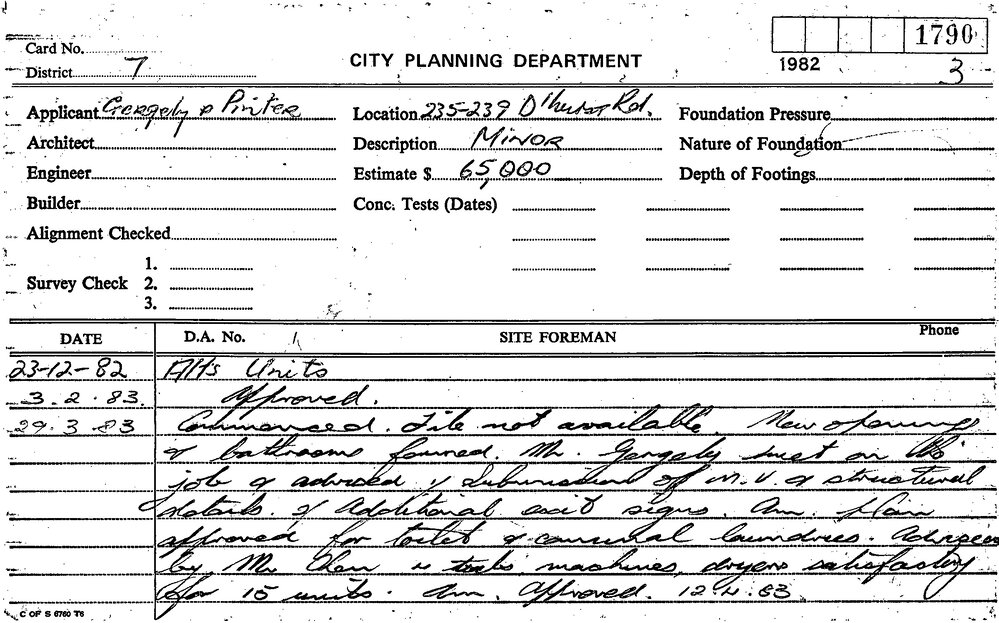 Card No.
1790
District 7
CITY PLANNING DEPARTMENT
1982
3
Applicant Gergely & Pinter
Location 235-239 D'hurst Rd.
Foundation Pressure
Architect
Description MINOR
Nature of Foundation
Engineer
Estimate $ 65,000
Depth of Footings
Builder
Conc. Tests (Dates)
Alignment Checked
1.
Survey Check 2.
3.
DATE D.A. No. SITE FOREMAN Phone
23-12-82 Alts Units
3.2.83. Approved.
29.3.83 Commenced. File not available. New openings
& bathrooms formed. Mr. Gergely met on this
job & advised submission of M.V. & structural
details. & Additional exit signs. Am. Plan
approved for toilet & communal laundries. Advised
by Mr machines, dryers satisfactory
for 15 units. Am. Approved. 12.4.83
C OF S 6760 T6